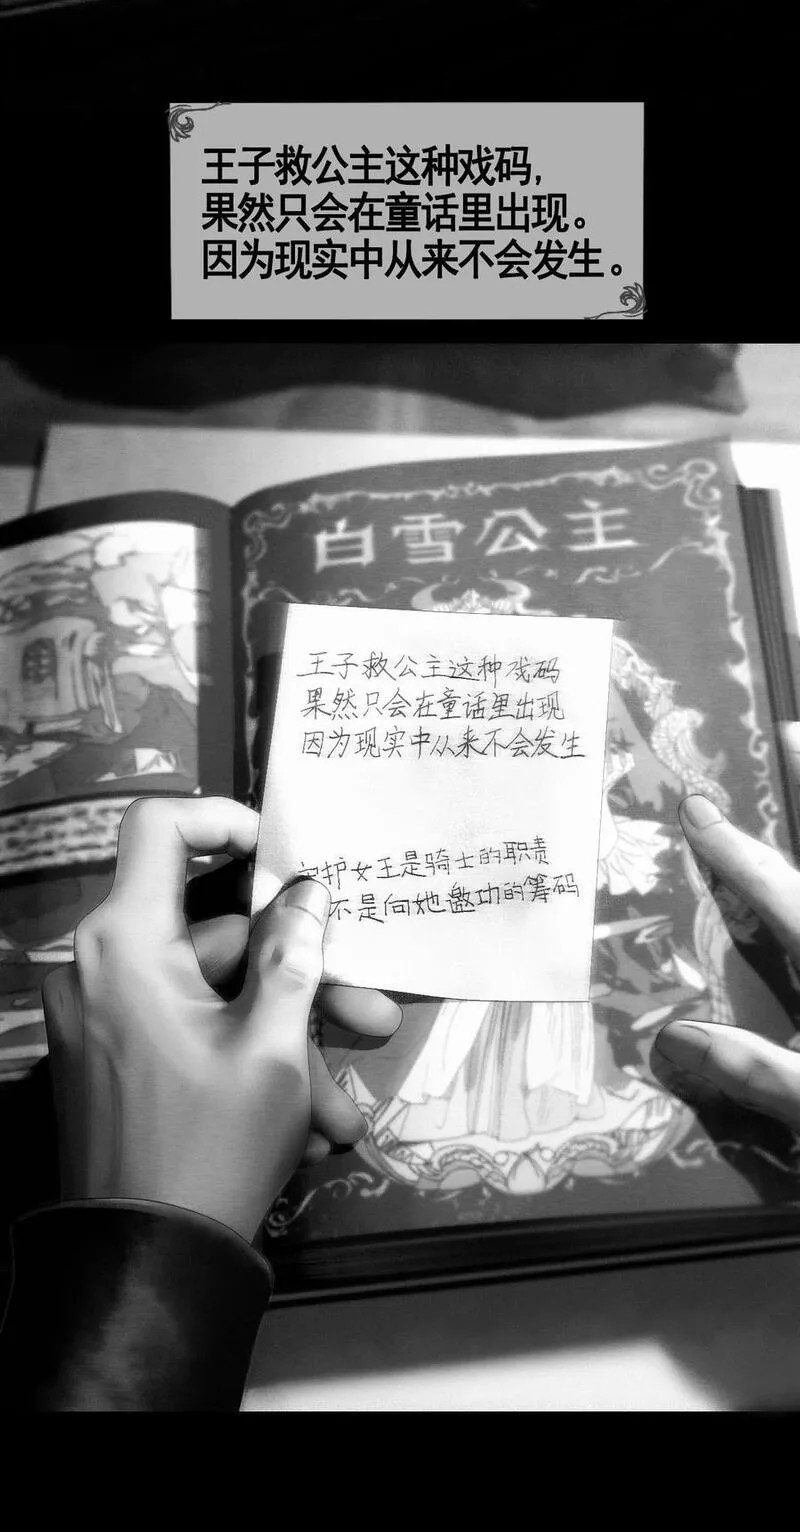 王子救公主这种戏码,
果然只会在童话里出现。
因为现实中从来不会发生。
白雪公主
王子救公主这种戏码
果然只会在童话里出现
因为现实中从来不会发生
守护女王是骑士的职责
不是向她邀功的筹码